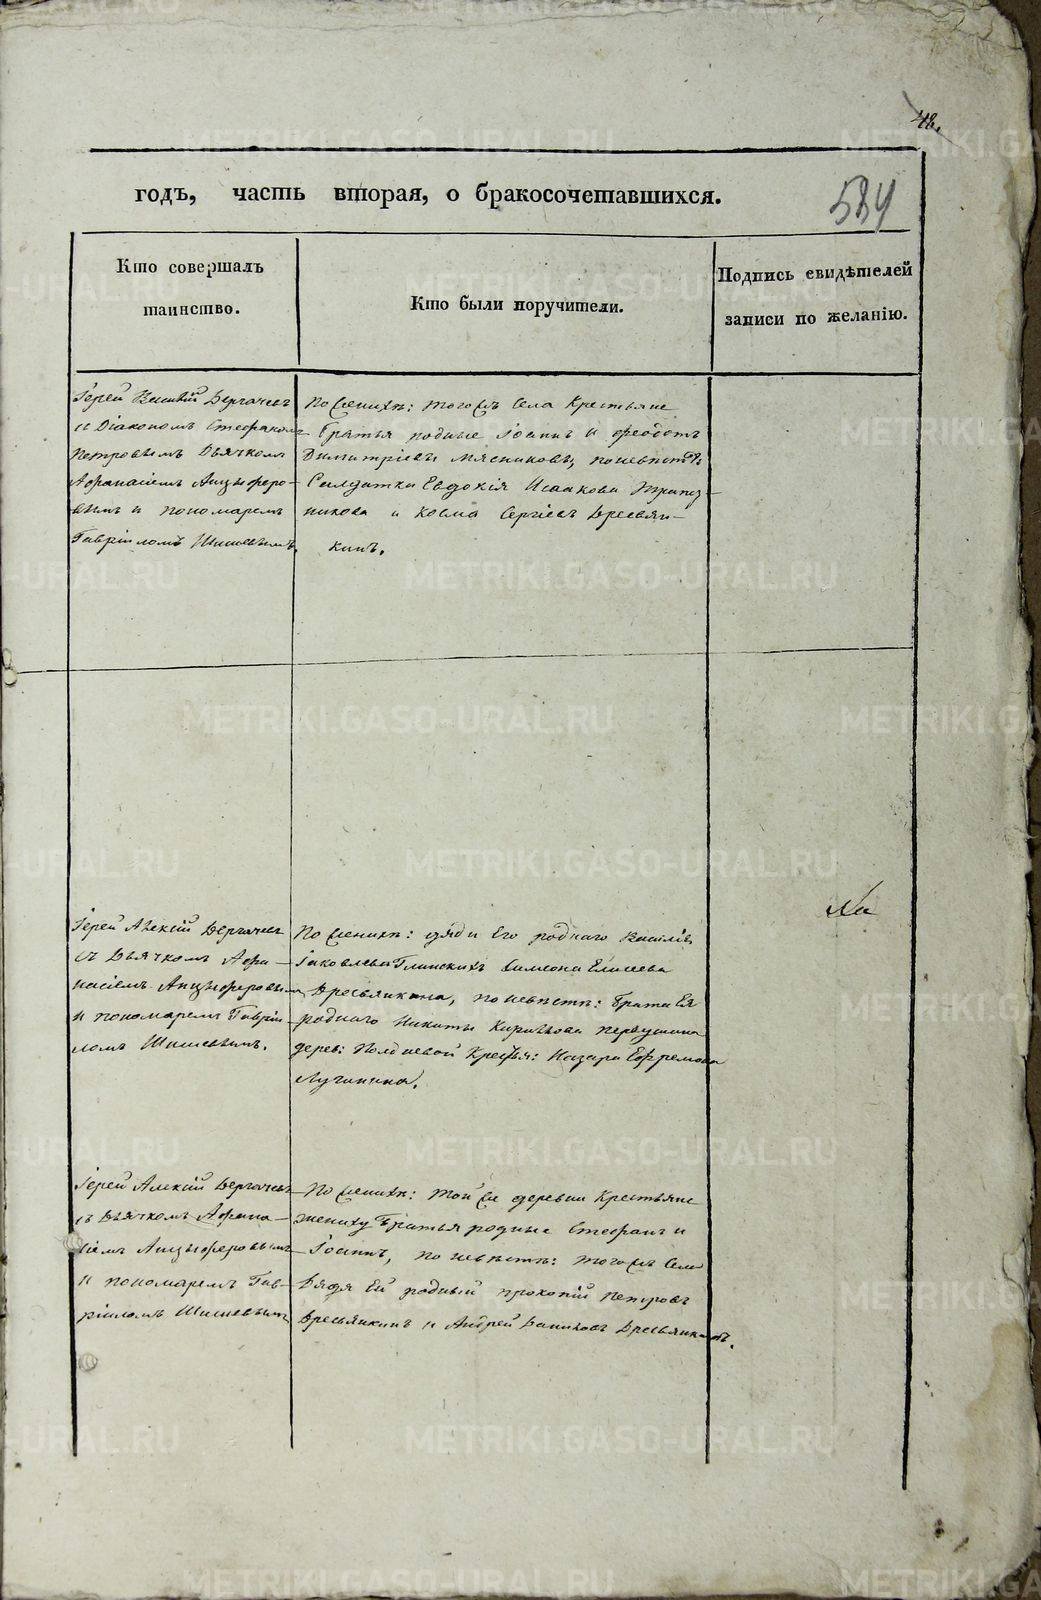 48.
584
годъ, часть вторая, о бракосочетавшихся.
Кто совершалъ
таинство.
Кто были поручители.
Подпись свидѣтелей
записи по желанію.
Іерей Василій Дергачевъ
и Діакономъ Стефаномъ
Петровымъ Дьячкомъ
Афанасіемъ Анцыферо-
вымъ и пономаремъ
Гавріиломъ Шишевымъ.
По женихѣ: тогожъ села Крестьяне
братья родные Іоаннъ и Феодотъ
Димитріевы Мясниковы, по невѣстѣ:
Салдатка Евдокія Исаакова
никова и Косма Сергіевъ Дресвян-
кинъ.
Іерей Алексій Дергачевъ
съ Дьячкомъ Афа-
насіемъ Анцыферовымъ
и пономаремъ Гавріи-
ломъ Шишевымъ.
По женихѣ: дяди Его роднаго Василія
Іаковлева Глинскихъ Симеона Елисеева
Дресвянкина, по невѣстѣ: брата Ея
роднаго Никиты Кирилова
дерев: Полдневой Крестья: Назара Ефремова
Лучинина.
На
Іерей Алексій Дергачевъ
съ Дьячкомъ Афана-
сіемъ Анцыферовымъ
и пономаремъ Гав-
ріиломъ Шишевымъ
По женихѣ: той же деревни Крестьяне
жениху братья родные Стефанъ и
Іоаннъ, по невѣстѣ: тогожъ села
Дядя Ей родный Прокопій Петровъ
Дресвянкинъ и Андрей Даниловъ Дресвянкинъ.
METRIKI.GASO-URAL.RU